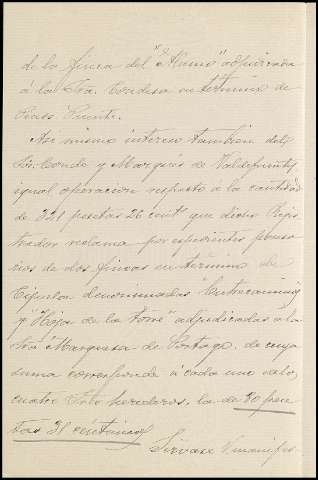 de la finca del "Alamo" adjudicada
á la Sra. Condesa en termino de
Puente.
Asi mismo intereso tambien del
Sr. Conde y Marqués de Valdefuentes
igual operacion respecto á la cantidad
de 321 pesetas 26 centº que dicho Regis
trador reclama por espedientes poseso
rios de dos fincas en término de
denominadas "Entrecaminos
y "Hoja de la torre" adjudicadas á la
Sra Marquesa de Portago, de cuya
suma corresponde á cada uno de los
cuatro herederos, la de 80 pese
tas 31 centimos
Sirvase